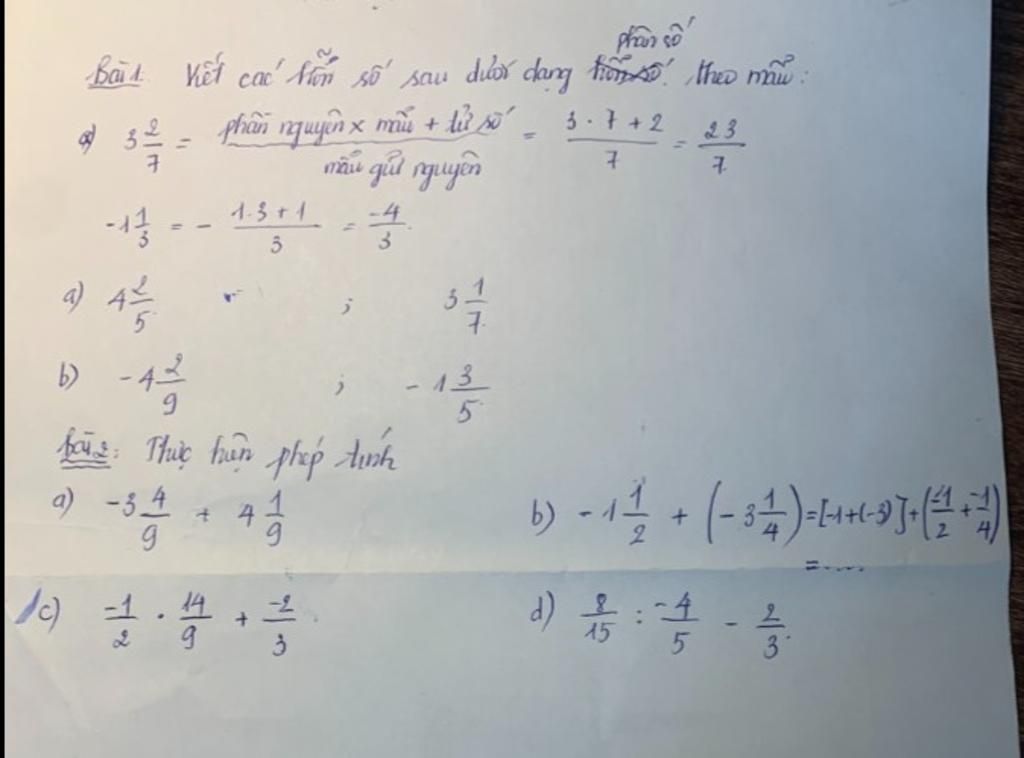 phân số
Bài 1. Viết các hỗn số sau dưới dạng hỗn số. theo mẫu:
a) 3 2/7 = (phần nguyên x mẫu + tử số)/(mẫu giữ nguyên) = (3 . 7 + 2)/7 = 23/7
-1 1/3 = - (1.3 + 1)/3 = -4/3.
a) 4 2/5 ; 3 1/7
b) -4 2/9 ; -1 3/5
Bài 2: Thực hiện phép tính
a) -3 4/9 + 4 1/9 b) -1 1/2 + (-3 1/4) = [-1+(-3)] + (-1/2 + -1/4)
=....
c) -1/2 . 14/9 + -2/3 d) 8/15 : -4/5 - 2/3.